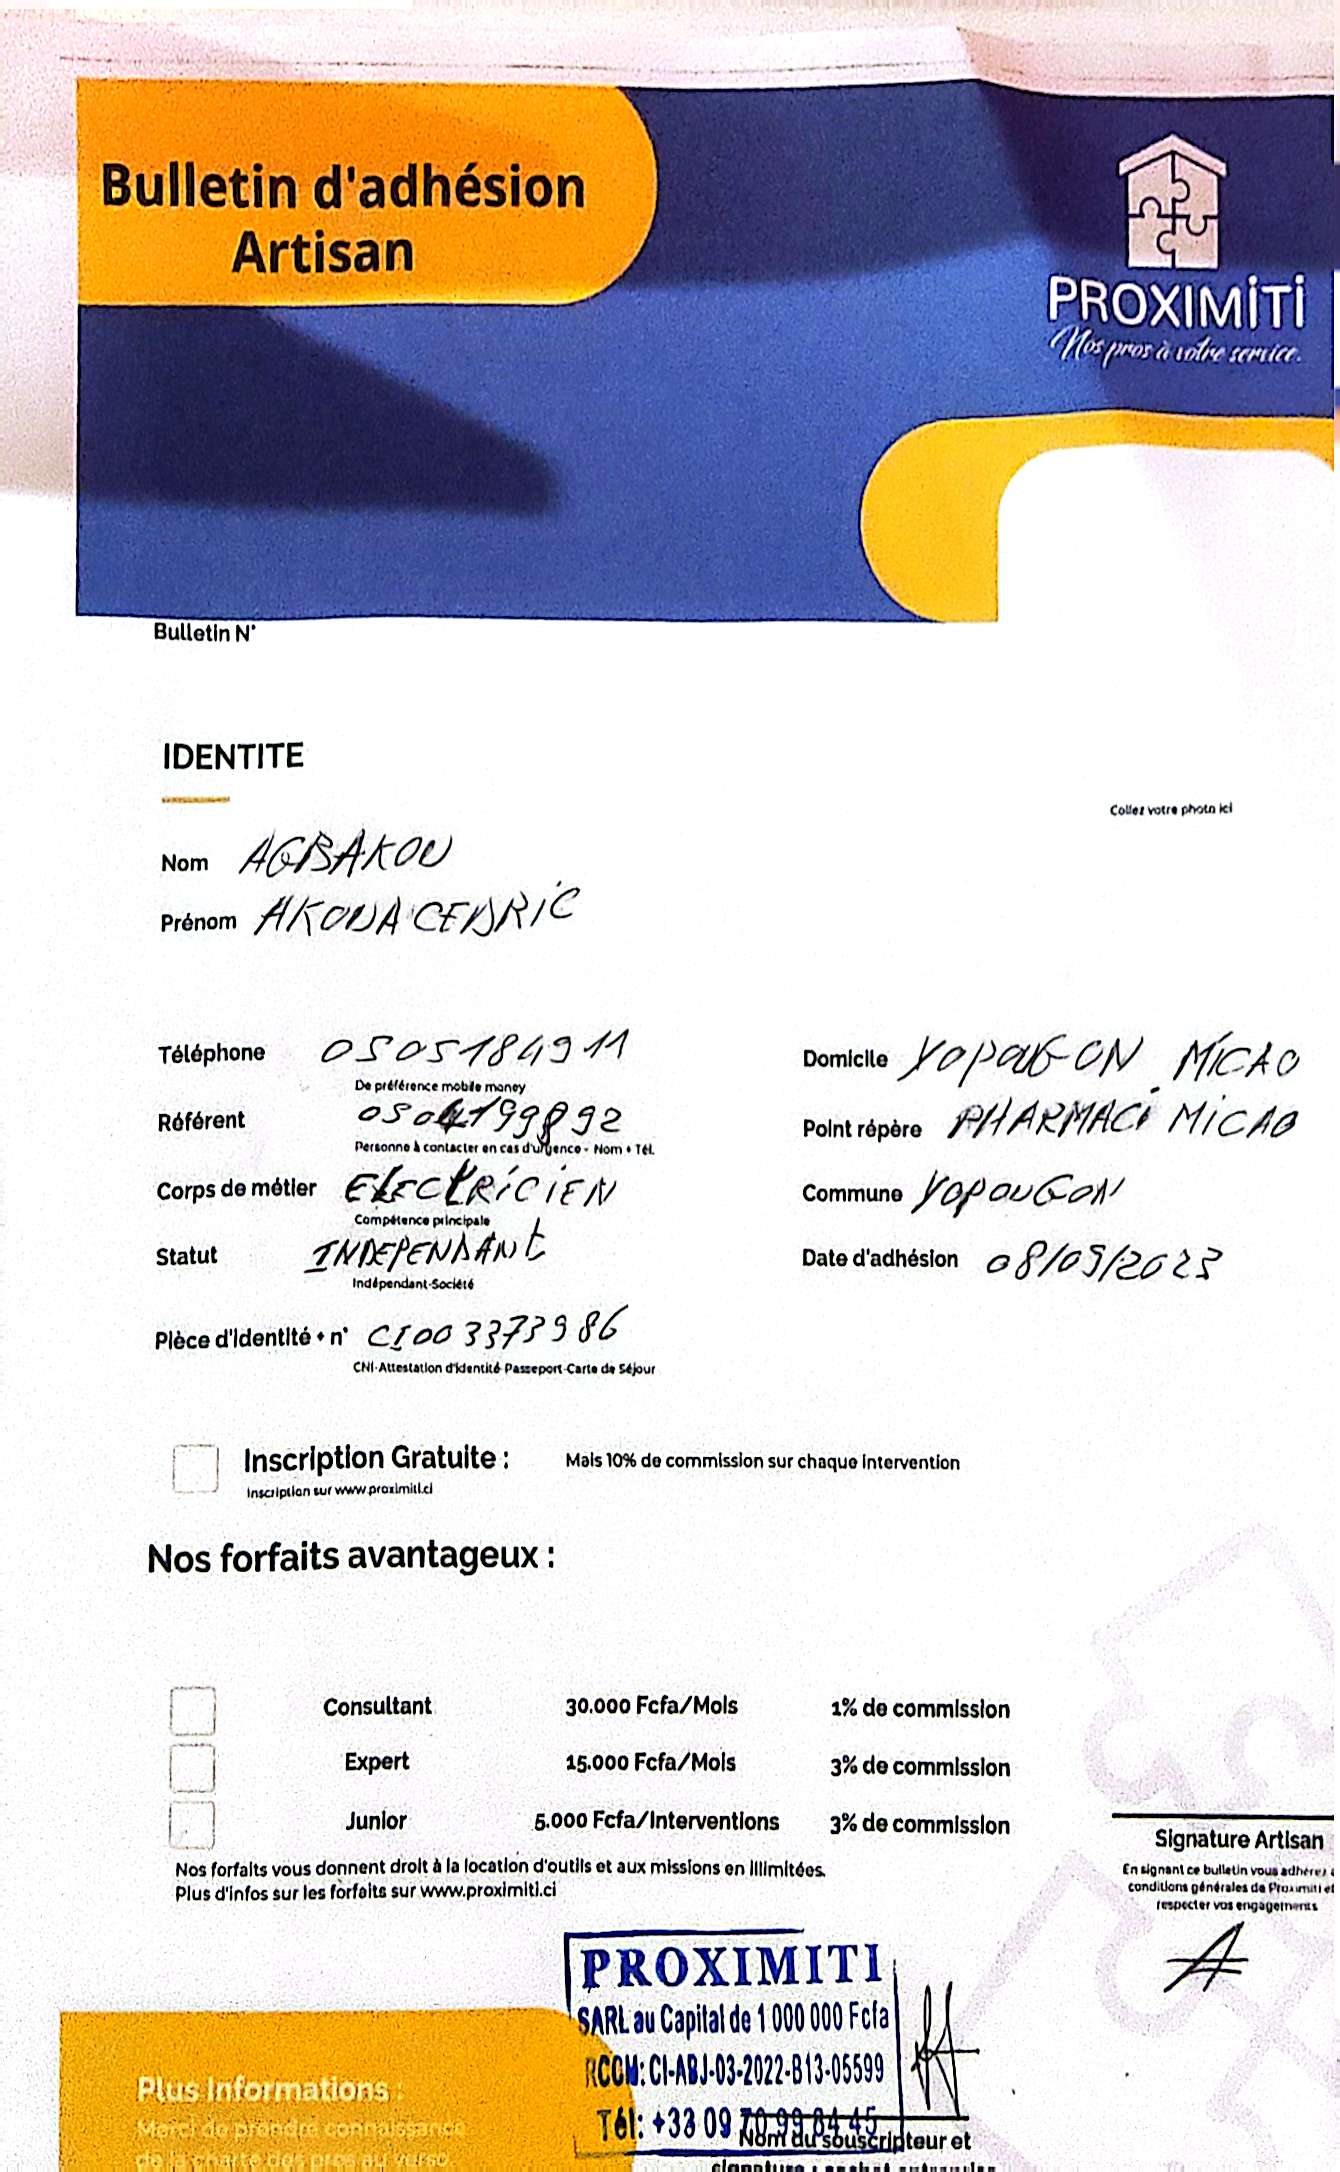 Bulletin d'adhésion
Artisan
PROXIMITI
Nos pros à votre service.
Bulletin N°
IDENTITE
Collez votre photo ici
Nom AGBAKOU
Prénom AKOUA CEDRIC
Téléphone 0505184911
De préférence mobile money
Domicile YOPOUGON MICAO
Référent 0504199892
Personne à contacter en cas d'urgence - Nom + Tél.
Point répère PHARMACI MICAO
Corps de métier ELECTRICIEN
Compétence principale
Commune YOPOUGON
Statut INDEPENDANT
Indépendant-Société
Date d'adhésion 08/09/2023
Pièce d'identité + n° CI003373986
CNI-Attestation d'identité-Passeport-Carte de Séjour
Inscription Gratuite : Mais 10% de commission sur chaque intervention
Inscription sur www.proximiti.ci
Nos forfaits avantageux :
Consultant 30.000 Fcfa/Mois 1% de commission
Expert 15.000 Fcfa/Mois 3% de commission
Junior 5.000 Fcfa/Interventions 3% de commission
Nos forfaits vous donnent droit à la location d'outils et aux missions en illimitées.
Plus d'infos sur les forfaits sur www.proximiti.ci
Signature Artisan
En signant ce bulletin vous adhérez
conditions générales de Proximiti et
respecter vos engagements
PROXIMITI
SARL au Capital de 1 000 000 Fcfa
RCCM: CI-ABJ-03-2022-B13-05599
Tél: +33 09 70 99 84 45
Nom du souscripteur et
Plus Informations :
Merci de prendre connaissance
de la charte des pros au verso.